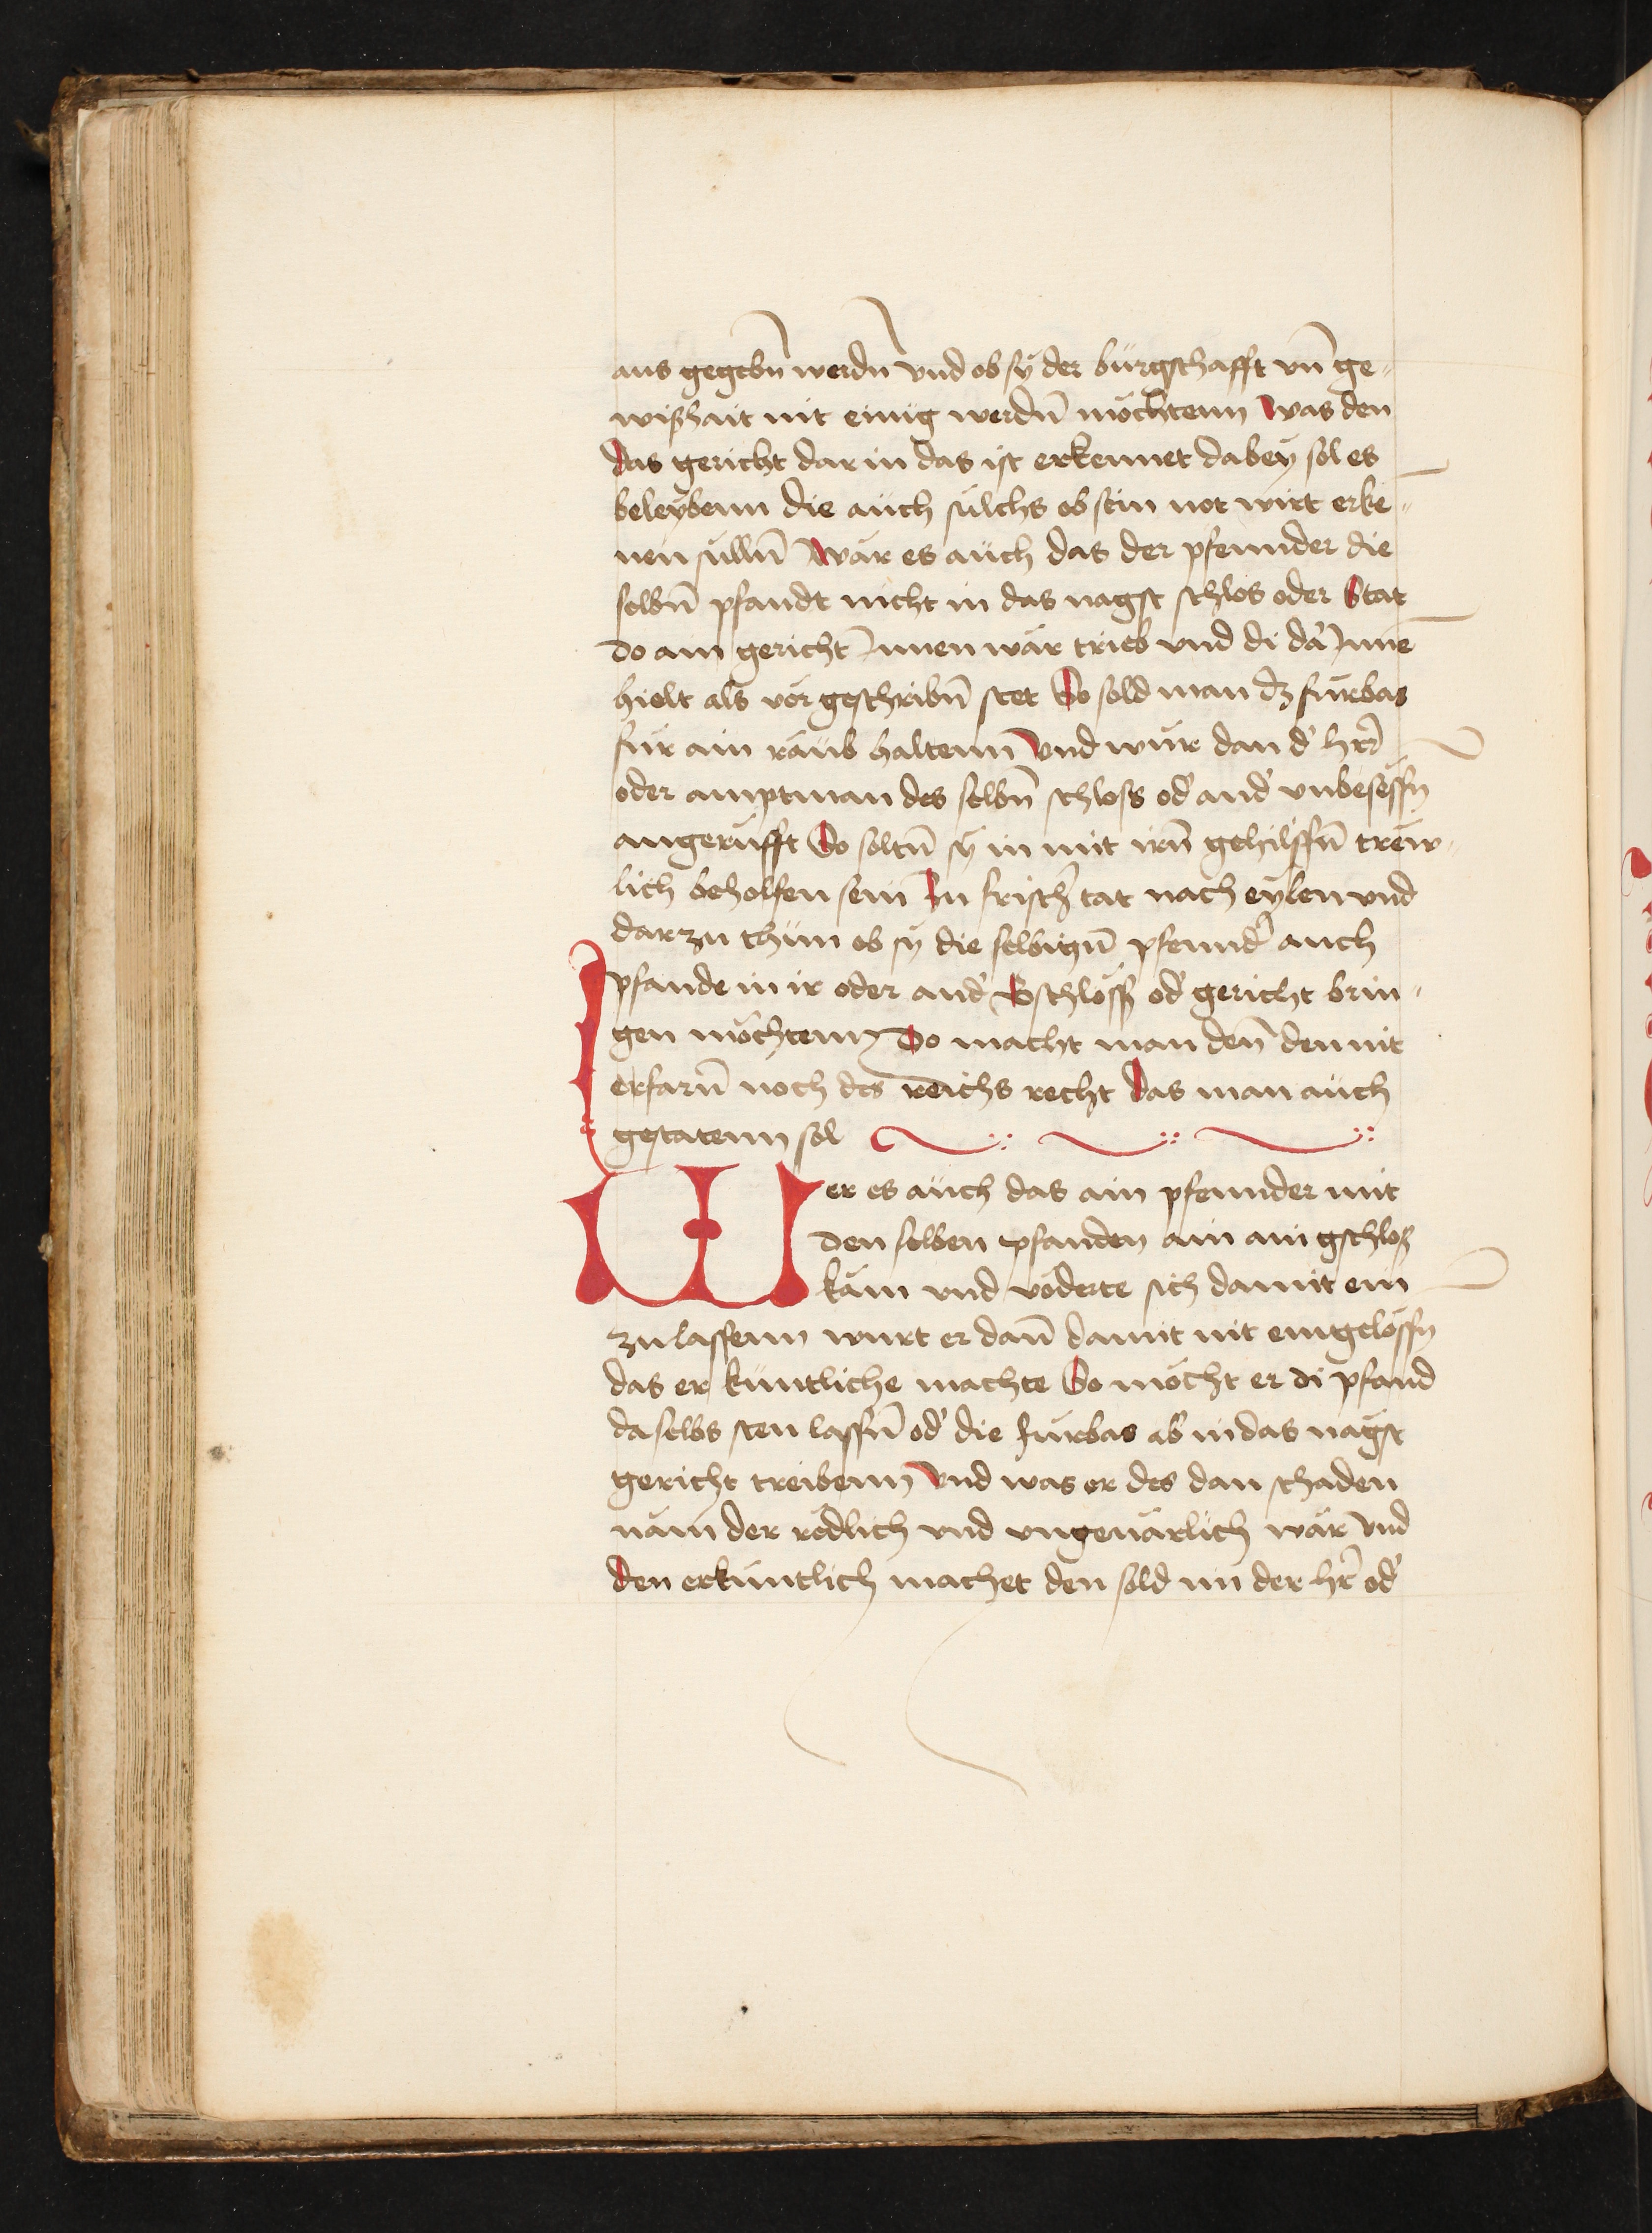 aus gegebn̄ werdn̄ vnd ob sÿ der bürgschafft vn̄ ge„
wißhait nit einig werdn̄ möchtenn Was den
das gericht dar in das ist erkennet dabeÿ sol es
beleÿbenn die aüch sülchs ob sein not wirt erke„
nen süllñ Wär es aüch das der pfennder die
selbñ pfandt nicht in das nagst schlos oder Stat
Do ain gericht Jnnen wär trieb vnd di da' Jnnē
hielt als vor geschribñ stet So sold man dz fürbas
für ain raüb haltenn Vnd wür dan d' hrē
oder amptman des selbñ schloss od' and' vnbesessñ
angerüfft So soltñ sÿ in mit irñ gehilffñ trew„
lich beholfen sein In frisch' tat nach eÿlen vnd
darzu thün ob sÿ die selbigñ pfennd' auch
pfande in ir oder and' Gschlöss od' gericht brin„
gen möchtenn Do macht man den̄ den nit
erfarñ noch des reichs recht das man aüch
gestatenn sol
Wer es aüch das ain pfennder mit
den selben pfanden ain ain gschloß
käm vnd voderte sich damit ein
zu lassenn wurt er dan̄ damit nit eingelossñ
das er küntliche machte So möcht er di pfand
daselbs sten lassñ od' die fürbas ab in das nägst
gericht treibenn Vnd was er des dan schaden
näm der redlich vnd vngeuärlich wär vnd
den erküntlich machet den sold im der hr̄ od'